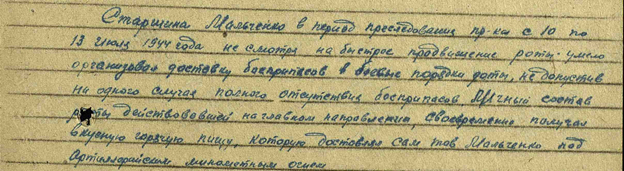 Старшина Мальченко в период преследования пр-ка с 10 по
13 июля 1944 года не смотря на быстрое продвижение роты умело
организовал доставку боеприпасов в боевые порядки роты, не допустив
ни одного случая полного отсутствия боеприпасов Личный состав
роты действовавшей на главном направлении, своевременно получал
вкусную горячую пищу, которую доставлял сам тов Мальченко под
Артиллерийским минометным огнем